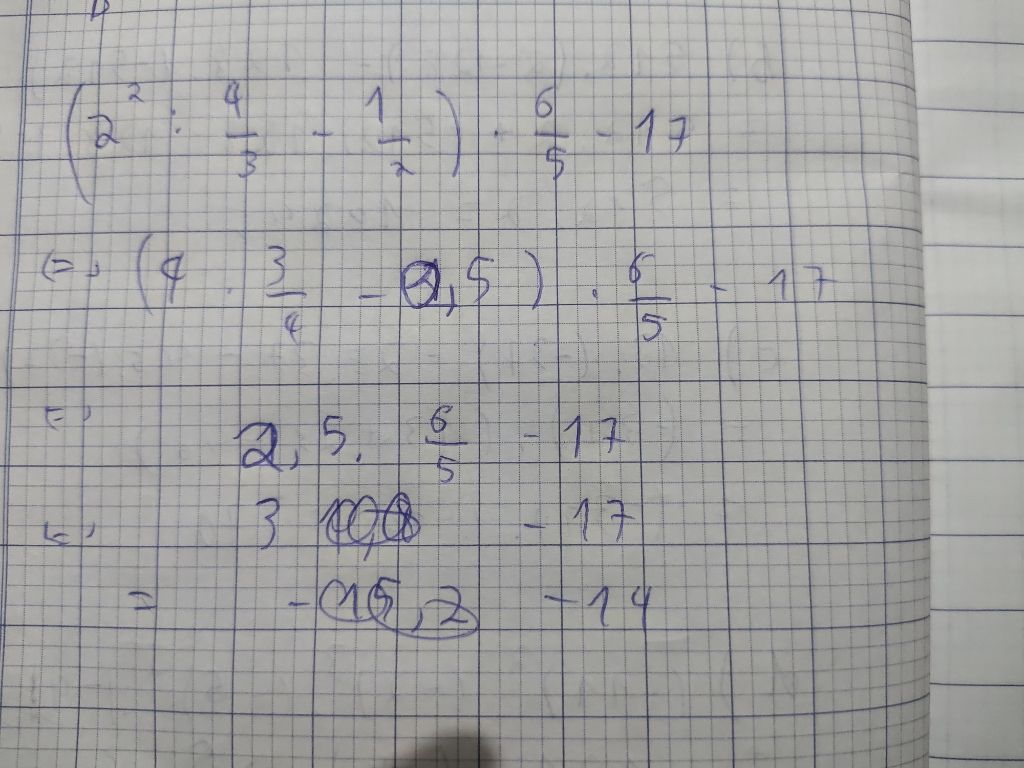 (2² : 4/3 - 1/2) . 6/5 - 17
<=> (4 . 3/4 - 0,5) . 6/5 - 17
<=> 2,5 . 6/5 - 17
<=> 3 - 17
= -14